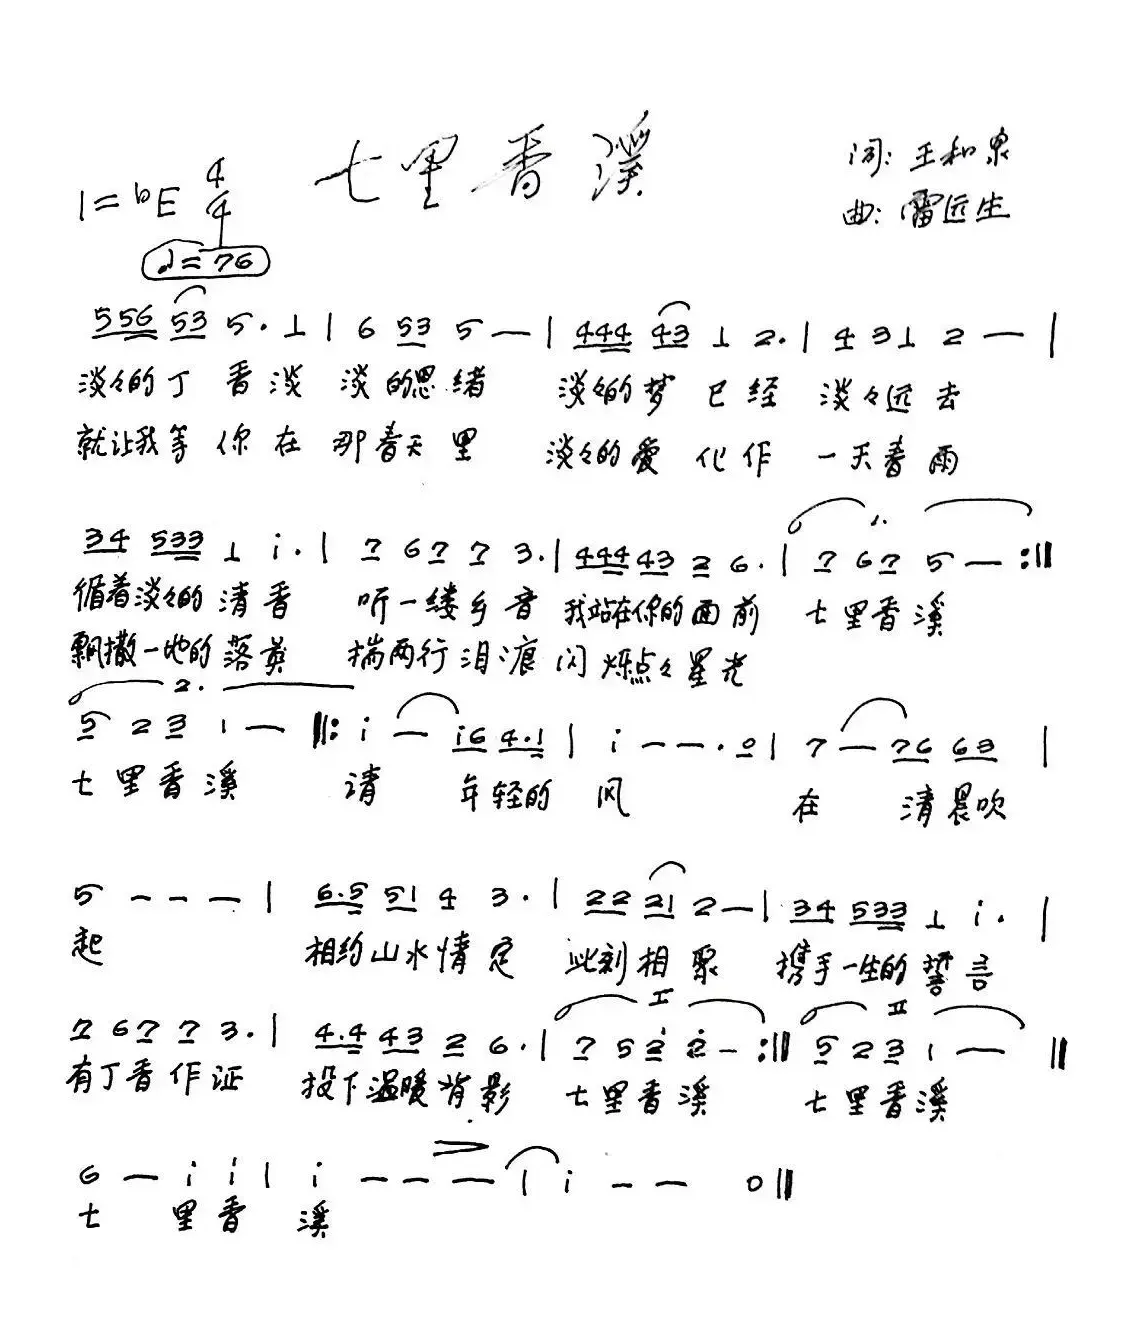 七里香溪
词: 王和泉
曲: 雷远生
1=♭E 4/4
♩=76
556 53 5. 1 | 6 53 5 — | 444 43 1 2. | 4 3 1 2 — |
淡々的丁香淡 淡的思绪 淡々的梦已经 淡々远去
就让我等你在那春天里 淡々的爱化作一天春雨
34 533 1 i. | 7 67 7 3. | 444 43 2 6. | 1. 7 67 5 — :||
循着淡々的清香 听一缕乡音 我站在你的面前 七里香溪
飘撒一地的落英 揣两行泪痕 闪烁点々星光
2. 5 2 3 1 — ||: i — i6 4.1 | i — — . 0 | 7 — 76 63 |
七里香溪 请 年轻的风 在 清晨吹
5 — — — | 6.5 51 4 3. | 22 21 2 — | 34 533 1 i. |
起 相约山水情定 此刻相聚 携手一生的誓言
7 67 7 3. | 4.4 43 2 6. | I 7 5 2̇ 2̇ — :|| II 5 2 3 1 — ||
有丁香作证 投下温暖背影 七里香溪 七里香溪
6 — i i | i — — — | i — — 0 ||
七 里香 溪